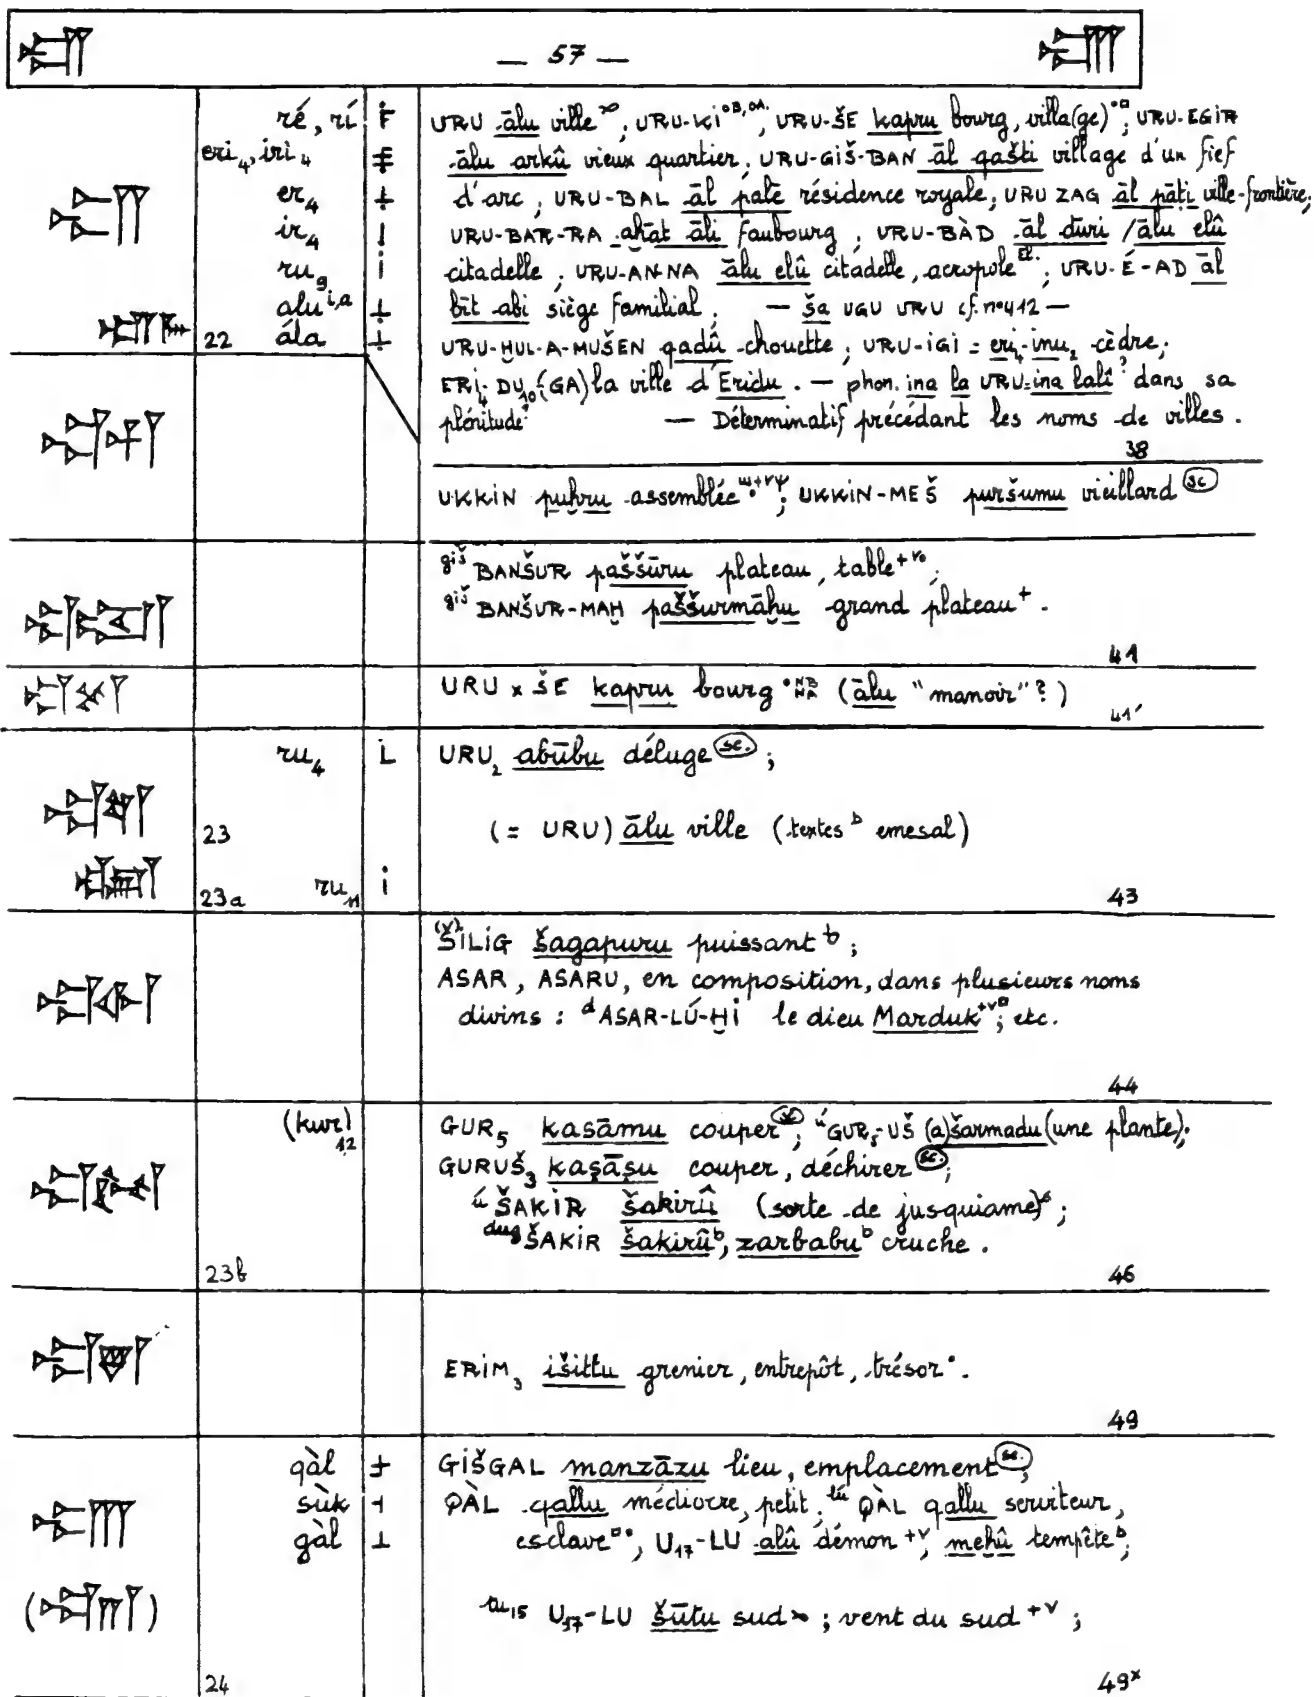 — 57 —
ré, rí URU ālu ville; URU-KI OB, OA; URU-ŠE kapru bourg, villa(ge); URU-EGIR
eri₄, iri₄ ālu arkû vieux quartier; URU-GIŠ-BAN āl qašti village d'un fief
er₄ d'arc; URU-BAL āl palê résidence royale; URU ZAG āl pāṭi ville-frontière;
ir₄ URU-BAR-RA aḫāt āli faubourg; URU-BÀD āl dūri / ālu elû
ru₉ citadelle; URU-AN-NA ālu elû citadelle, acropole; URU-É-AD āl
alu i,a bīt abi siège familial. — ša UGU URU cf. nº 412 —
22 ála URU-ḪUL-A-MUŠEN qadû chouette; URU-IGI = eri₄-inu₂ cèdre;
ERI₄-DU₁₀(GA) la ville d'Eridu. — phon. ina la URU = ina lalî ? dans sa
plénitude ? — Déterminatif précédant les noms de villes.
38
UKKIN puḫru assemblée; UKKIN-MEŠ puršumu vieillard sc
giš BANŠUR paššūru plateau, table;
giš BANŠUR-MAḪ paššurmāḫu grand plateau +.
41
URU x ŠE kapru bourg NB NA (ālu "manoir" ?)
41'
ru₄ URU₂ abūbu déluge sc.;
23 (= URU) ālu ville (textes b emesal)
23a ru₁₁ 43
ŠILIG šagapuru puissant b;
ASAR, ASARU, en composition, dans plusieurs noms
divins : d ASAR-LÚ-ḪI le dieu Marduk; etc.
44
(kur)₁₂ GUR₅ kasāmu couper sc; ú GUR₅-UŠ (a)šarmadu (une plante);
GURUŠ₃ kaṣāṣu couper, déchirer sc.;
ú ŠAKIR šakirû (sorte de jusquiame);
dug ŠAKIR šakirû b, zarbabu b cruche.
23b 46
ERIM₃ išittu grenier, entrepôt, trésor.
49
qàl GIŠGAL manzāzu lieu, emplacement sc.;
sùk QÀL qallu médiocre, petit, lú QÀL qallu serviteur,
gàl esclave; U₁₇-LU alû démon +v; meḫû tempête b;
tu₁₅ U₁₇-LU šūtu sud; vent du sud +v;
24 49x